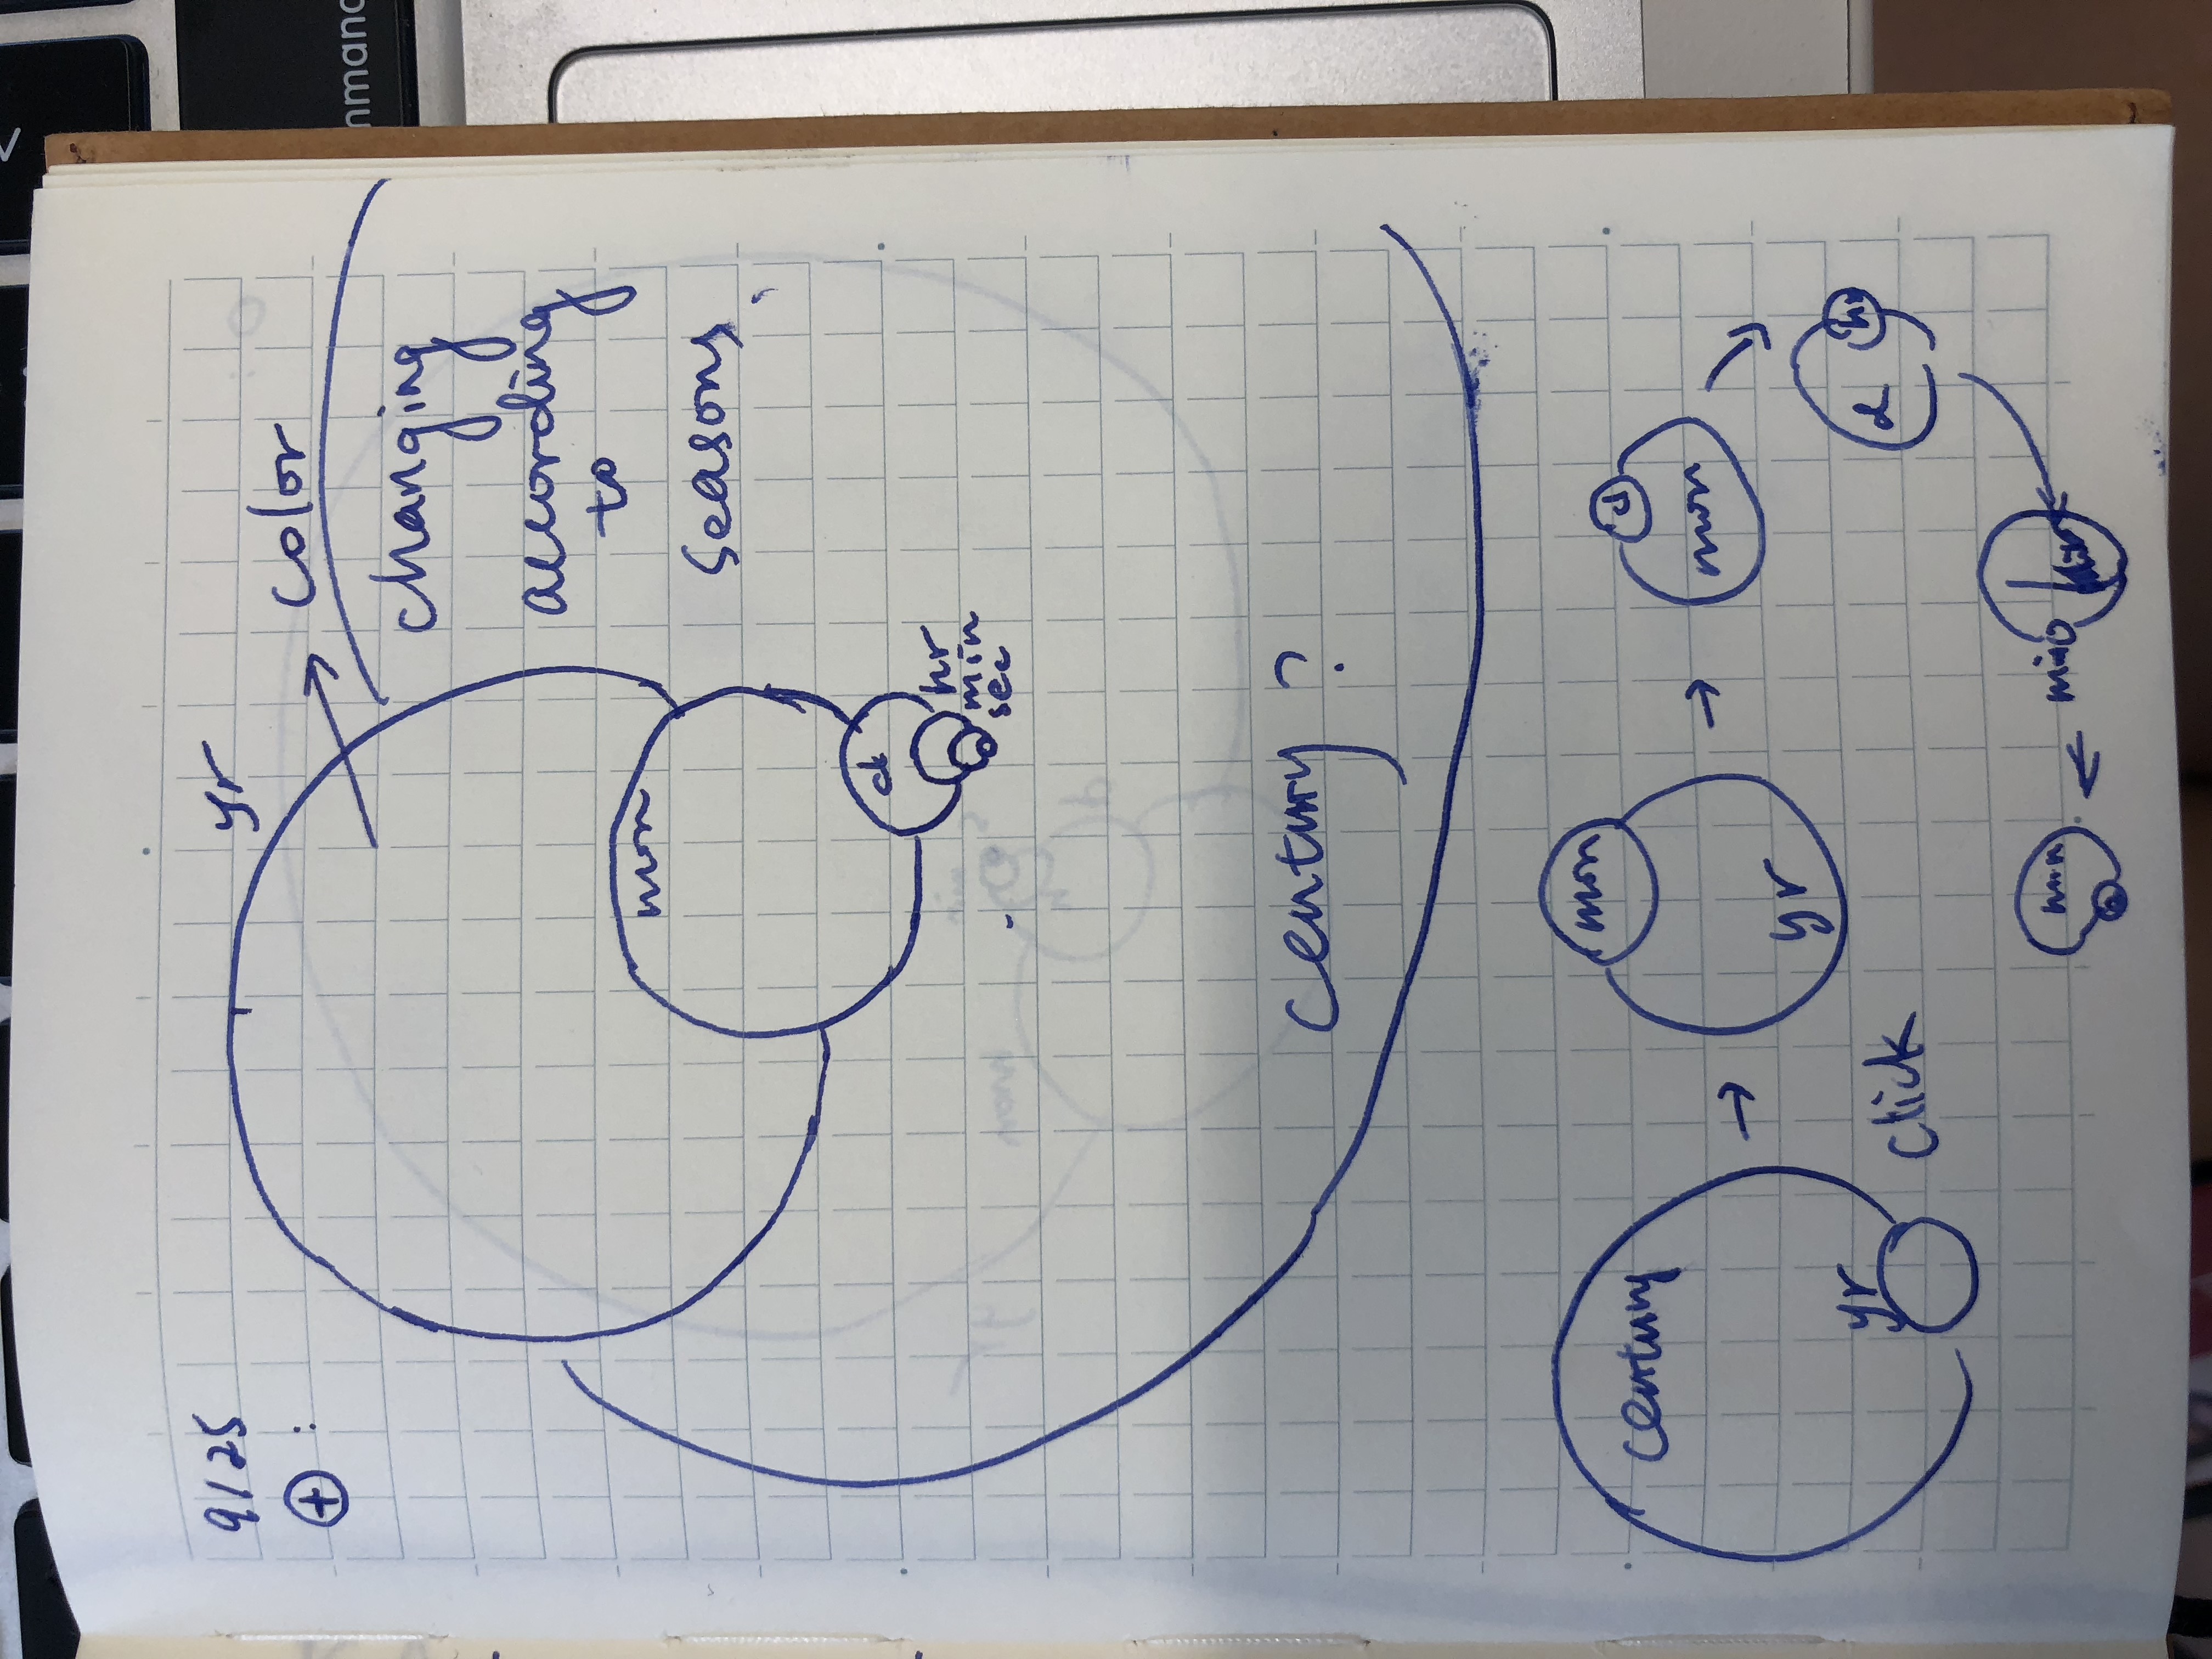 9/25
⊕ :
yr
color
changing
according
to
seasons
mon
d
hr
min
sec
century ?
century
yr
click
mon
yr
d
mon
d
hr
min
min
mmand